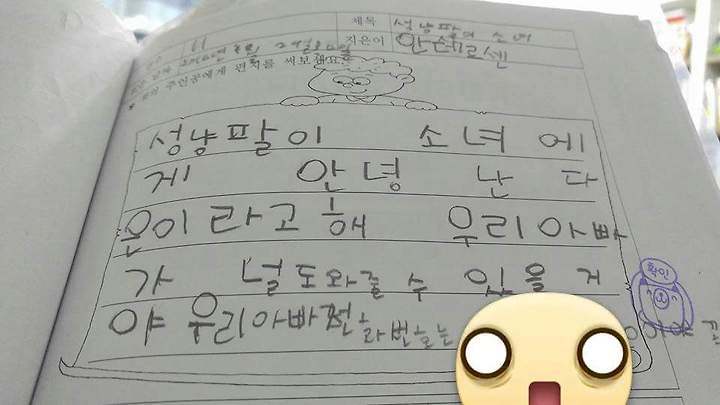 제목 성냥팔이 소녀
지은이 안데르센
주인공에게 편지를 써보세요
성냥팔이 소녀에
게 안녕 난 다
은이라고 해 우리아빠
가 널 도와줄 수 있을 거
야 우리아빠 전화번호는
확인